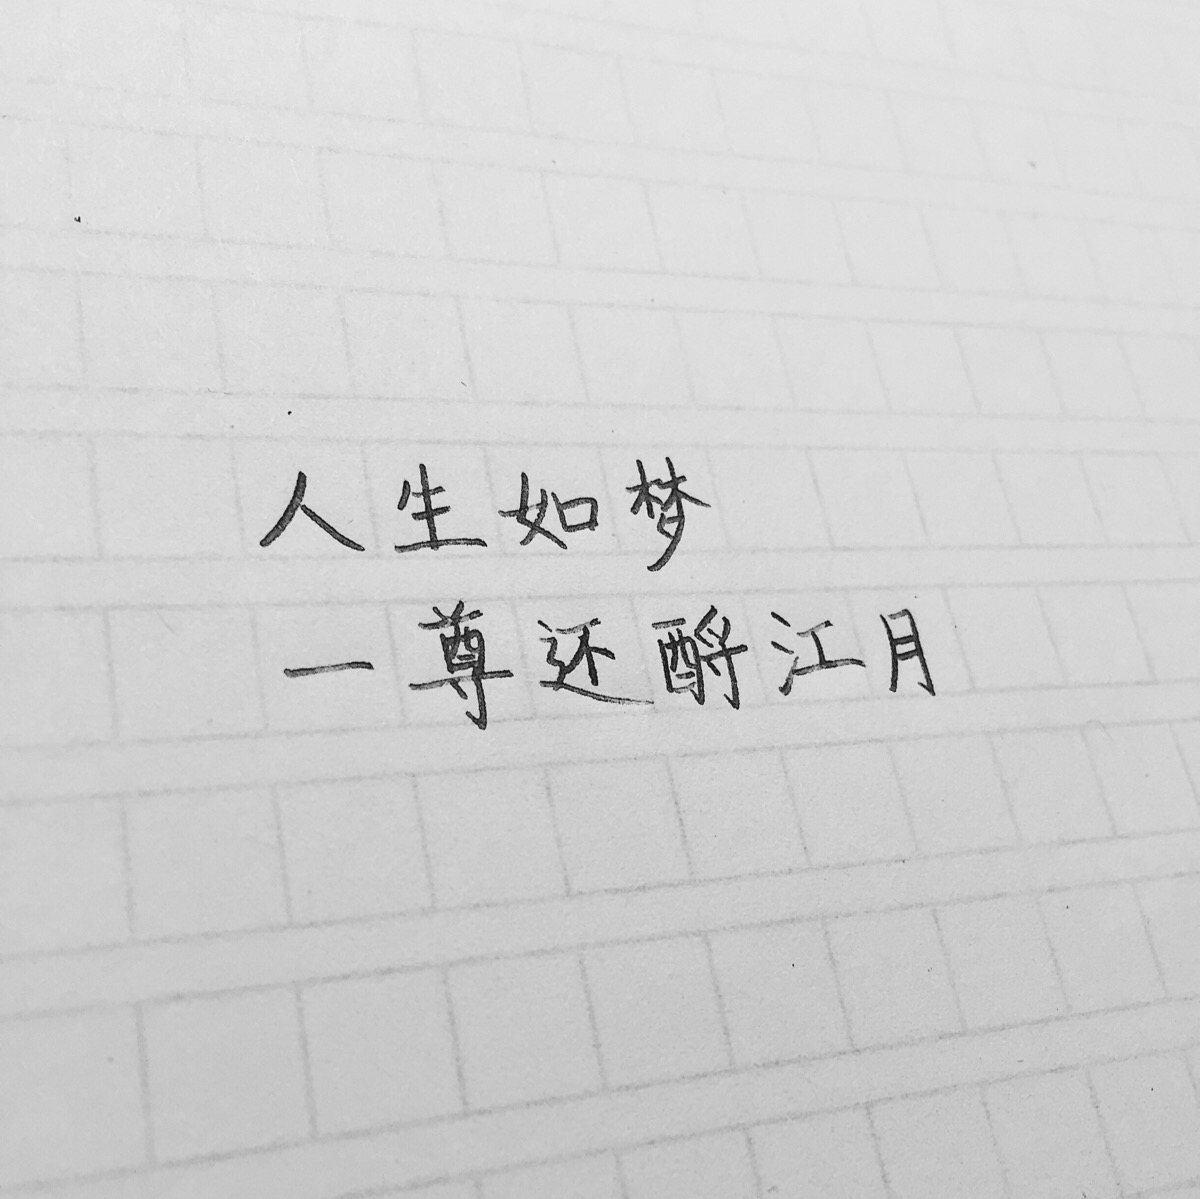 人生如梦
一尊还酹江月